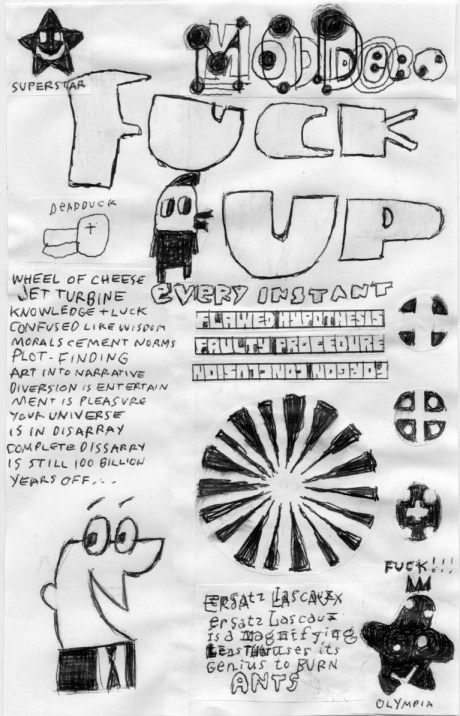 SUPERSTAR
MODDern
FUCK
UP
DeADDUCK
eVERY INSTANT
FLAWED HYPOTHESIS
FAULTY PROCEDURE
FOREGON CONCLUSION
WHEEL OF CHEESE
JET TURBINE
KNOWLEDGE + LUCK
CONFUSED LIKE WISDOM
MORALS CEMENT NORMS
PLOT-FINDING
ART INTO NARRATIVE
DIVERSION IS ENTERTAIN
MENT IS PLEASURE
YOUR UNIVERSE
IS IN DISARRAY
COMPLETE DISSARRY
IS STILL 100 BILLION
YEARS OFF...
FUCK!!!
Ersatz Lascaux
is a Magnifying
Lens that uses its
Genius to BURN
ANTS
OLYMPIA